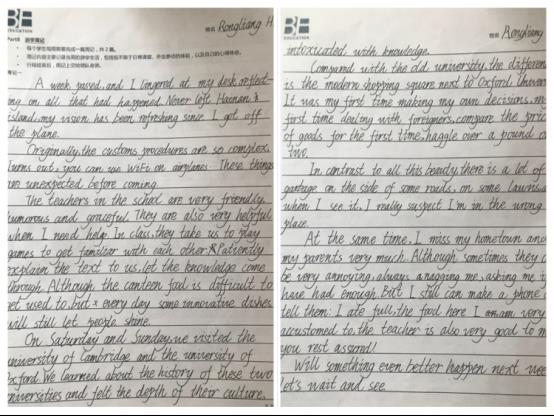 BE
EDUCATION
姓名 Rongliang H
Part8 游学周记
每个学生每周需要完成一篇周记，共2篇。
周记一
A week passed, and I lingered at my desk, reflect-
ing on all that had happened. Never left Hainan
island, my vision has been refreshing since I got off
the plane.
Originally, the customs procedures are so complex,
turns out, you can use WiFi on airplanes. These things
are unexpected before coming.
The teachers in the school are very friendly,
humorous and graceful. They are also very helpful
when I need help. In class, they take us to play
games to get familiar with each other. Patiently
explain the text to us, let the knowledge come
through. Although the canteen food is difficult to
get used to, but every day some innovative dishes
will still let people shine.
On Saturday and Sunday, we visited the
university of Cambridge and the university of
Oxford. We learned about the history of these two
universities and felt the depth of their culture,
BE
EDUCATION
姓名 Rongliang
intoxicated with knowledge.
Compared with the old university, the differen
is the modern shopping square next to Oxford Univers
It was my first time making my own decisions, m
first time dealing with foreigners, compare the pric
of goods for the first time, haggle over a pound o
two.
In contrast to all this beauty, there is a lot of
garbage on the side of some roads, on some lawns,
when I see it, I really suspect I'm in the wrong
place.
At the same time, I miss my hometown and
my parents very much. Although sometimes they c
be very annoying, always nagging me, asking me i
have had enough. But I still can make a phone
tell them: I ate full, the food here I am very
accustomed to, the teacher is also very good to m
you rest assured!
Will something even better happen next wee
let's wait and see.